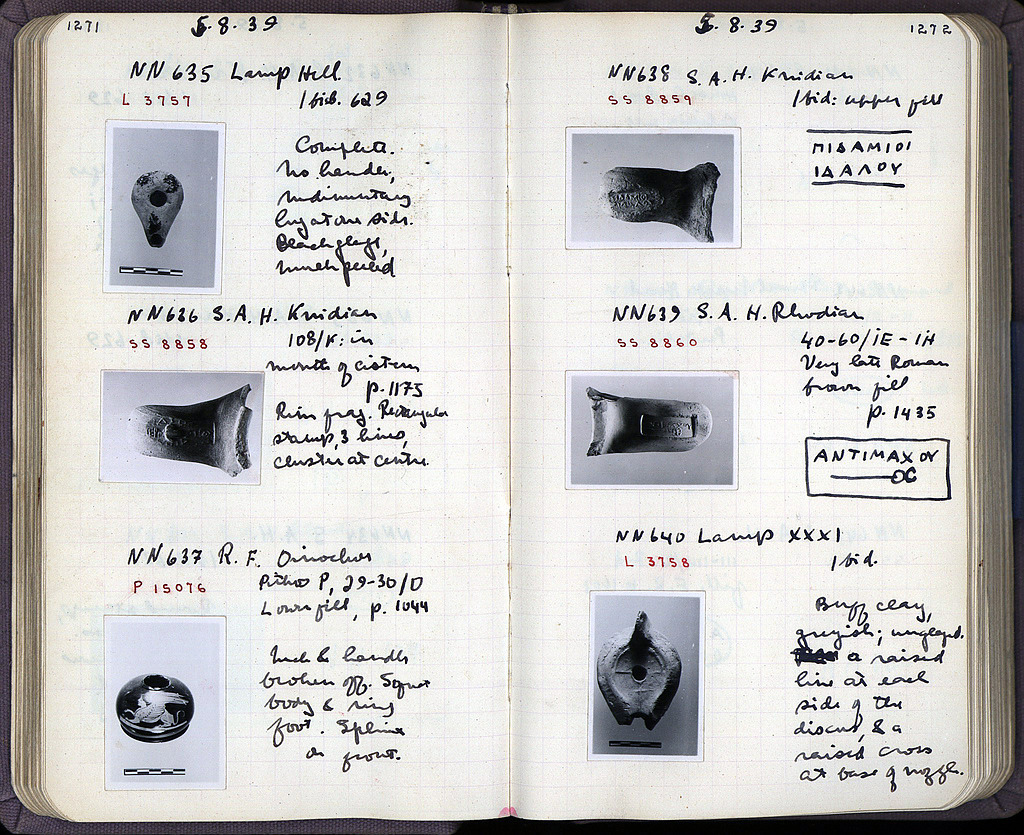 1271
5.8.39
NN 635 Lamp Hell
L 3757
Ibid. 629
Complete.
No handle,
rudimentary
lug at one side.
Black glaze,
much peeled
NN 636 S.A.H. Knidian
SS 8858
108/K: in
mouth of cistern
p. 1175
Rim frag. Rectangular
stamp, 3 lines,
cluster at centre.
NN 637 R.F. Oinochoe
P 15076
Pithos P, 29-30/D
Lower fill, p. 1044
Neck & handle
broken off. Squat
body & ring
foot. Sphinx
on front.
1272
5.8.39
NN 638 S.A.H. Knidian
SS 8859
Ibid: upper fill
ΠΙΔΑΜΙΟΙ
ΙΔΑΛΟΥ
NN 639 S.A.H. Rhodian
SS 8860
40-60/ΙΕ-ΙΗ
Very late Roman
brown fill
p. 1435
ΑΝΤΙΜΑΧΟΥ
NN 640 Lamp XXXI
L 3758
Ibid.
Buff clay,
greyish; unglazed.
a raised
line at each
side of the
discus, & a
raised cross
at base of nozzle.